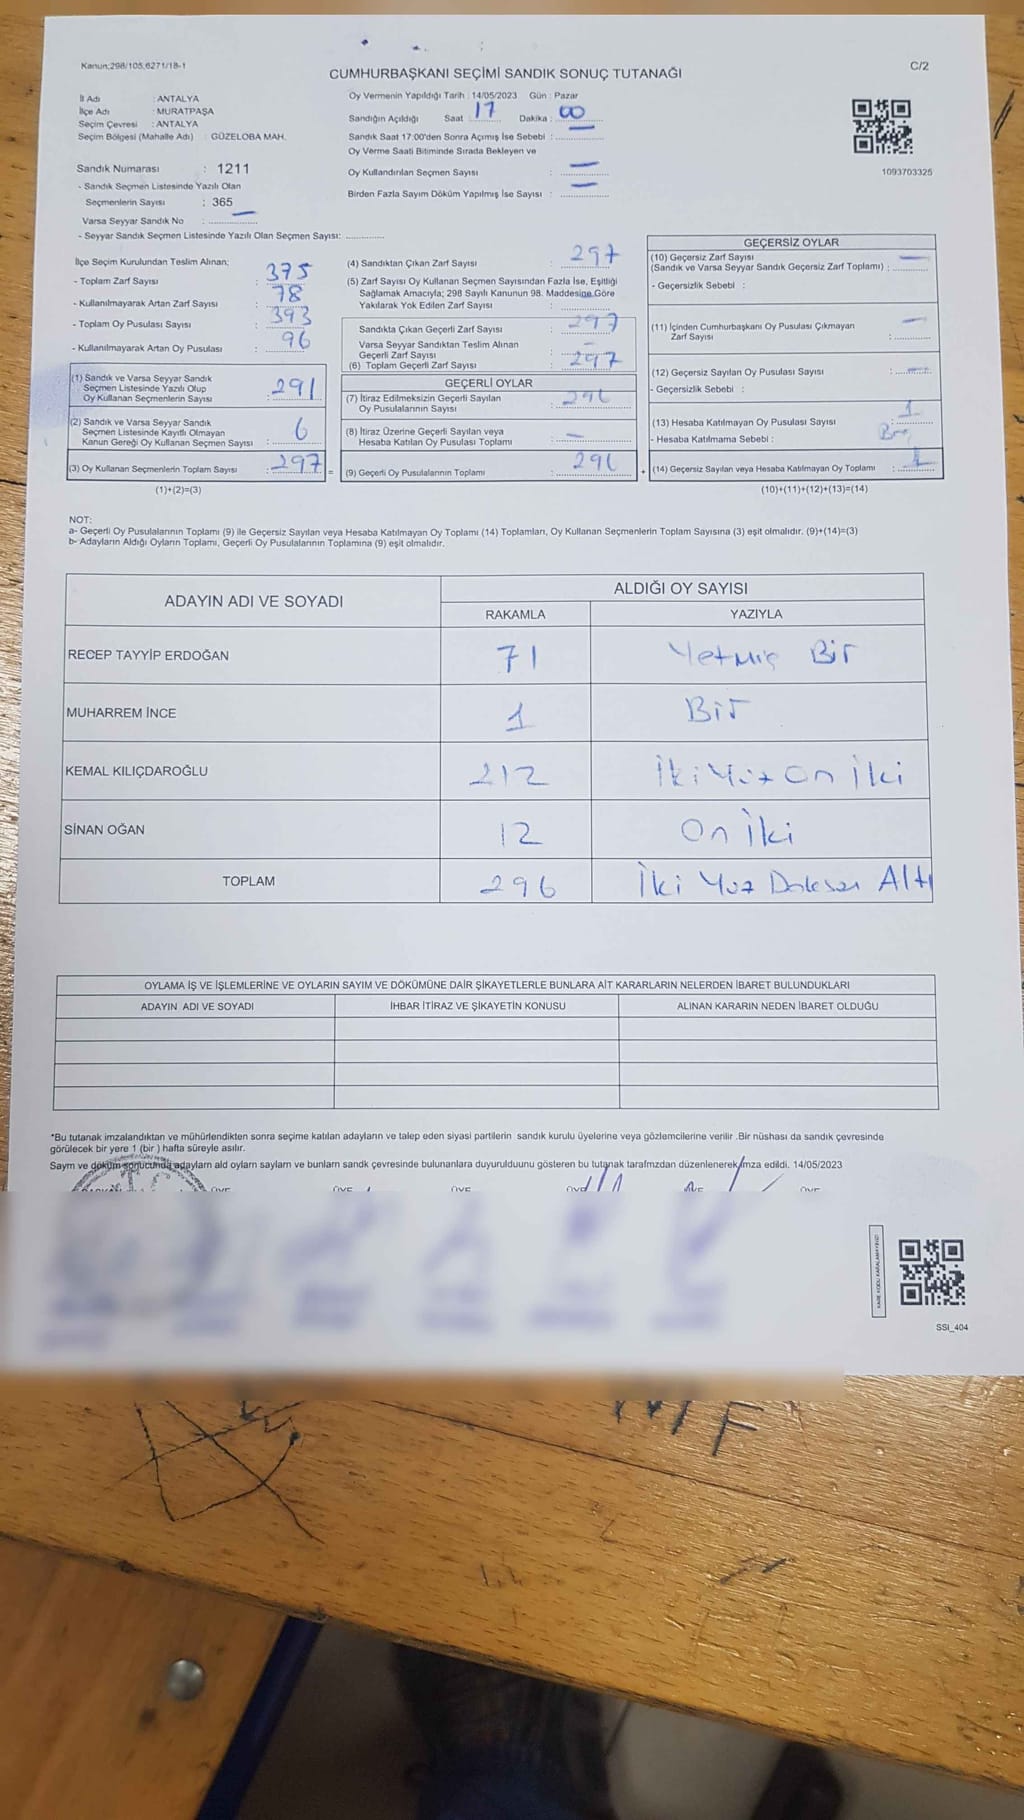 Kanun:298/105,6271/18-1
C/2
CUMHURBAŞKANI SEÇİMİ SANDIK SONUÇ TUTANAĞI
İl Adı : ANTALYA
İlçe Adı : MURATPAŞA
Seçim Çevresi : ANTALYA
Seçim Bölgesi (Mahalle Adı) : GÜZELOBA MAH.
Sandık Numarası : 1211
- Sandık Seçmen Listesinde Yazılı Olan
Seçmenlerin Sayısı : 365
Varsa Seyyar Sandık No : —
- Seyyar Sandık Seçmen Listesinde Yazılı Olan Seçmen Sayısı:
Oy Vermenin Yapıldığı Tarih : 14/05/2023 Gün : Pazar
Sandığın Açıldığı Saat : 17 Dakika : 00
Sandık Saat 17:00'den Sonra Açımış İse Sebebi : —
Oy Verme Saati Bitiminde Sırada Bekleyen ve
Oy Kullandırılan Seçmen Sayısı : —
Birden Fazla Sayım Döküm Yapılmış İse Sayısı : —
1093703325
İlçe Seçim Kurulundan Teslim Alınan;
- Toplam Zarf Sayısı : 375
- Kullanılmayarak Artan Zarf Sayısı : 78
- Toplam Oy Pusulası Sayısı : 393
- Kullanılmayarak Artan Oy Pusulası : 96
(1) Sandık ve Varsa Seyyar Sandık
Seçmen Listesinde Yazılı Olup
Oy Kullanan Seçmenlerin Sayısı : 291
(2) Sandık ve Varsa Seyyar Sandık
Seçmen Listesinde Kayıtlı Olmayan
Kanun Gereği Oy Kullanan Seçmen Sayısı : 6
(3) Oy Kullanan Seçmenlerin Toplam Sayısı : 297 =
(1)+(2)=(3)
(4) Sandıktan Çıkan Zarf Sayısı : 297
(5) Zarf Sayısı Oy Kullanan Seçmen Sayısından Fazla İse, Eşitliği
Sağlamak Amacıyla; 298 Sayılı Kanunun 98. Maddesine Göre
Yakılarak Yok Edilen Zarf Sayısı : —
Sandıkta Çıkan Geçerli Zarf Sayısı : 297
Varsa Seyyar Sandıktan Teslim Alınan
Geçerli Zarf Sayısı : —
(6) Toplam Geçerli Zarf Sayısı : 297
GEÇERLİ OYLAR
(7) İtiraz Edilmeksizin Geçerli Sayılan
Oy Pusulalarının Sayısı : 296
(8) İtiraz Üzerine Geçerli Sayılan veya
Hesaba Katılan Oy Pusulası Toplamı : —
(9) Geçerli Oy Pusulalarının Toplamı : 296 +
GEÇERSİZ OYLAR
(10) Geçersiz Zarf Sayısı
(Sandık ve Varsa Seyyar Sandık Geçersiz Zarf Toplamı) : —
- Geçersizlik Sebebi :
(11) İçinden Cumhurbaşkanı Oy Pusulası Çıkmayan
Zarf Sayısı : —
(12) Geçersiz Sayılan Oy Pusulası Sayısı : —
- Geçersizlik Sebebi :
(13) Hesaba Katılmayan Oy Pusulası Sayısı : 1
- Hesaba Katılmama Sebebi :
(14) Geçersiz Sayılan veya Hesaba Katılmayan Oy Toplamı : 1
(10)+(11)+(12)+(13)=(14)
NOT:
a- Geçerli Oy Pusulalarının Toplamı (9) ile Geçersiz Sayılan veya Hesaba Katılmayan Oy Toplamı (14) Toplamları, Oy Kullanan Seçmenlerin Toplam Sayısına (3) eşit olmalıdır. (9)+(14)=(3)
b- Adayların Aldığı Oyların Toplamı, Geçerli Oy Pusulalarının Toplamına (9) eşit olmalıdır.
ADAYIN ADI VE SOYADI ALDIĞI OY SAYISI
RAKAMLA YAZIYLA
RECEP TAYYİP ERDOĞAN 71 Yetmiş Bir
MUHARREM İNCE 1 Bir
KEMAL KILIÇDAROĞLU 212 İki Yüz On İki
SİNAN OĞAN 12 On İki
TOPLAM 296 İki Yuz Doksan Altı
OYLAMA İŞ VE İŞLEMLERİNE VE OYLARIN SAYIM VE DÖKÜMÜNE DAİR ŞİKAYETLERLE BUNLARA AİT KARARLARIN NELERDEN İBARET BULUNDUKLARI
ADAYIN ADI VE SOYADI İHBAR İTİRAZ VE ŞİKAYETİN KONUSU ALINAN KARARIN NEDEN İBARET OLDUĞU
*Bu tutanak imzalandıktan ve mühürlendikten sonra seçime katılan adayların ve talep eden siyasi partilerin sandık kurulu üyelerine veya gözlemcilerine verilir .Bir nüshası da sandık çevresinde
görülecek bir yere 1 (bir ) hafta süreyle asılır.
Sayım ve döküm sonucunda adaylarn ald oylarn saylarn ve bunlarn sandk çevresinde bulunanlara duyurulduunu gösteren bu tutanak tarafmzdan düzenlenerek imza edildi. 14/05/2023
ÜYE ÜYE ÜYE ÜYE ÜYE ÜYE
KARE KODU KARALAMAYINIZ!
SSI_404